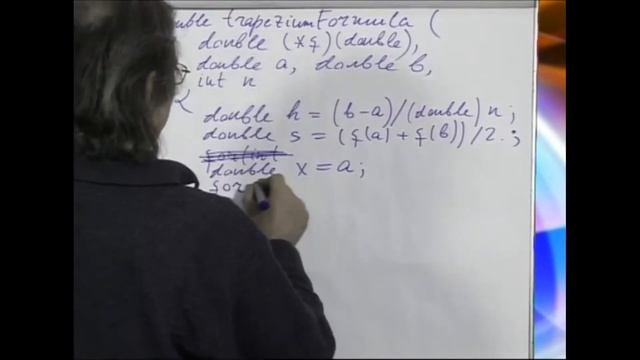 trapeziumFormula (
double (*f)(double),
double a, double b,
int n
{
double h = (b-a)/(double) n;
double s = (f(a) + f(b))/2.;
for(int
double x = a;
for